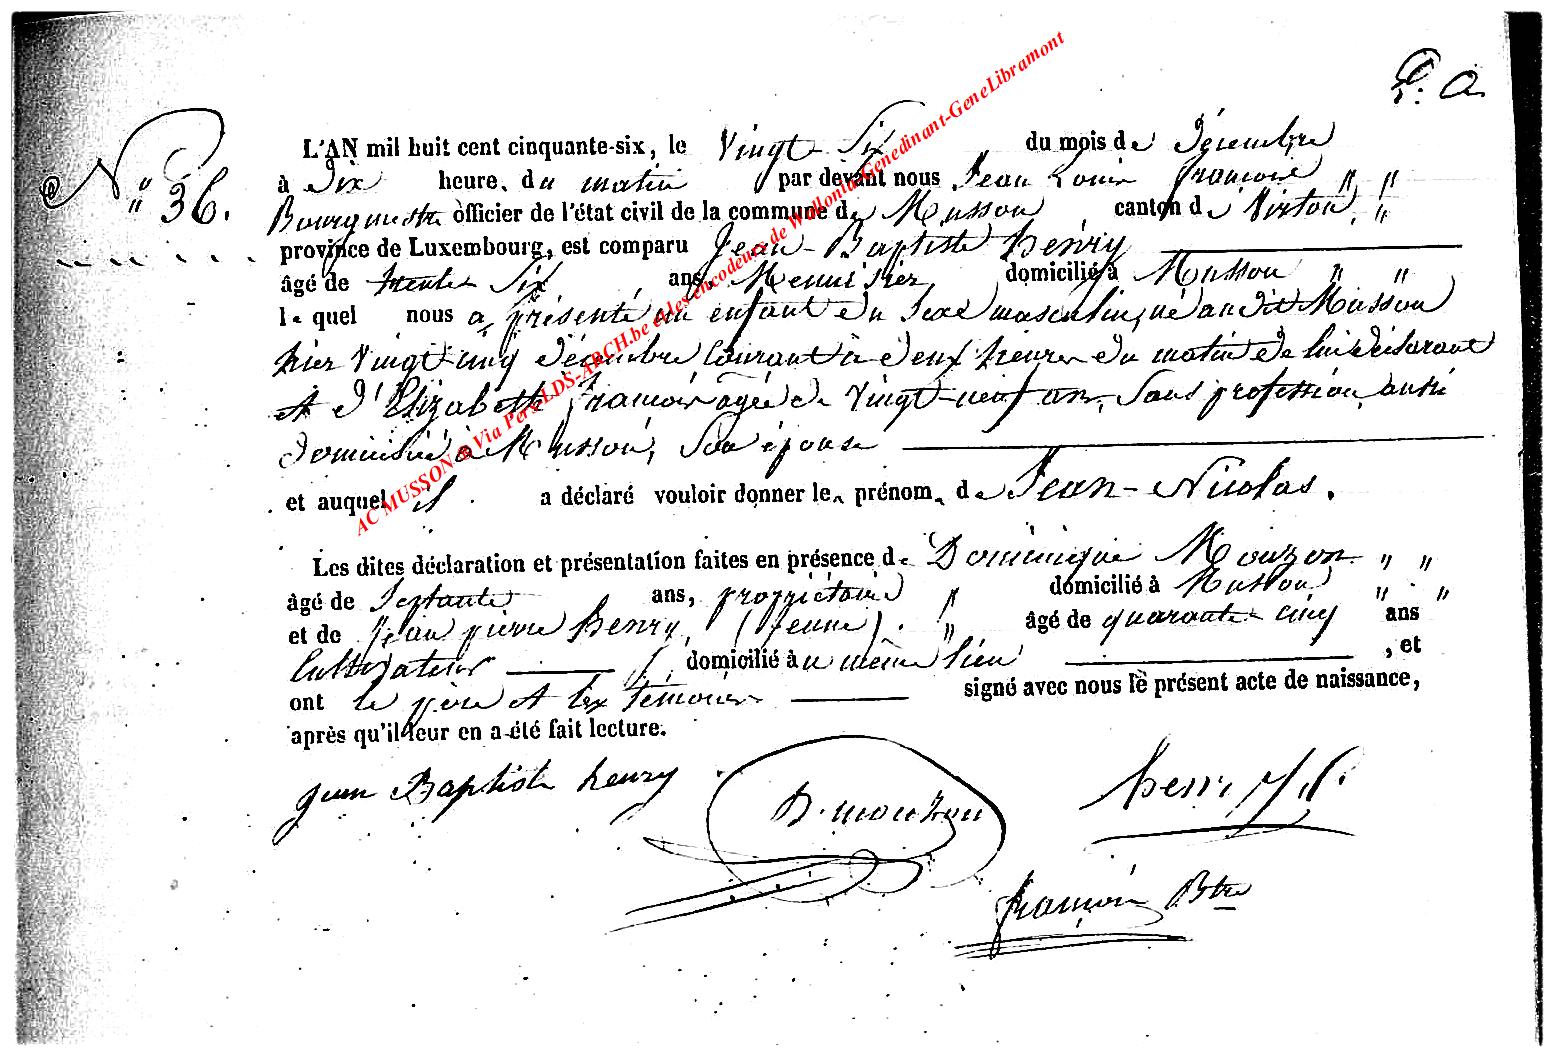 P. A.
N° 36.
L'AN mil huit cent cinquante-six, le Vingt-Six du mois de Décembre
à Dix heure, du matin par devant nous Jean Louis françois " "
Bourgmestre officier de l'état civil de la commune de Musson, canton de Virton, "
province de Luxembourg, est comparu Jean-Baptiste henry
âgé de trente Six ans, Menuisier domicilié à Musson " "
lequel nous a présenté un enfant du Sexe masculin, né au dit Musson
hier Vingt cinq décembre Courant à deux heures du matin de lui déclarant
et d'Elizabette françois agée de Vingt-neuf ans, Sans profession, aussi
domiciliée à Musson, Son épouse
et auquel il a déclaré vouloir donner le prénom de Jean-Nicolas.
Les dites déclaration et présentation faites en présence de Dominique Mouzon " "
âgé de Septante ans, propriétaire " domicilié à Musson " "
et de Jean pierre henry, (jeune). " âgé de quarante cinq ans
Cultivateur domicilié au même lieu , et
ont le père et les témoins signé avec nous le présent acte de naissance,
après qu'il leur en a été fait lecture.
jean Baptiste henry
D. mouzon
henri J. P.
françois Btre
AC MUSSON @ Via Pers LDS-ARCH.be et les encodeurs de Wallonie-Genedinant-GeneLibramont